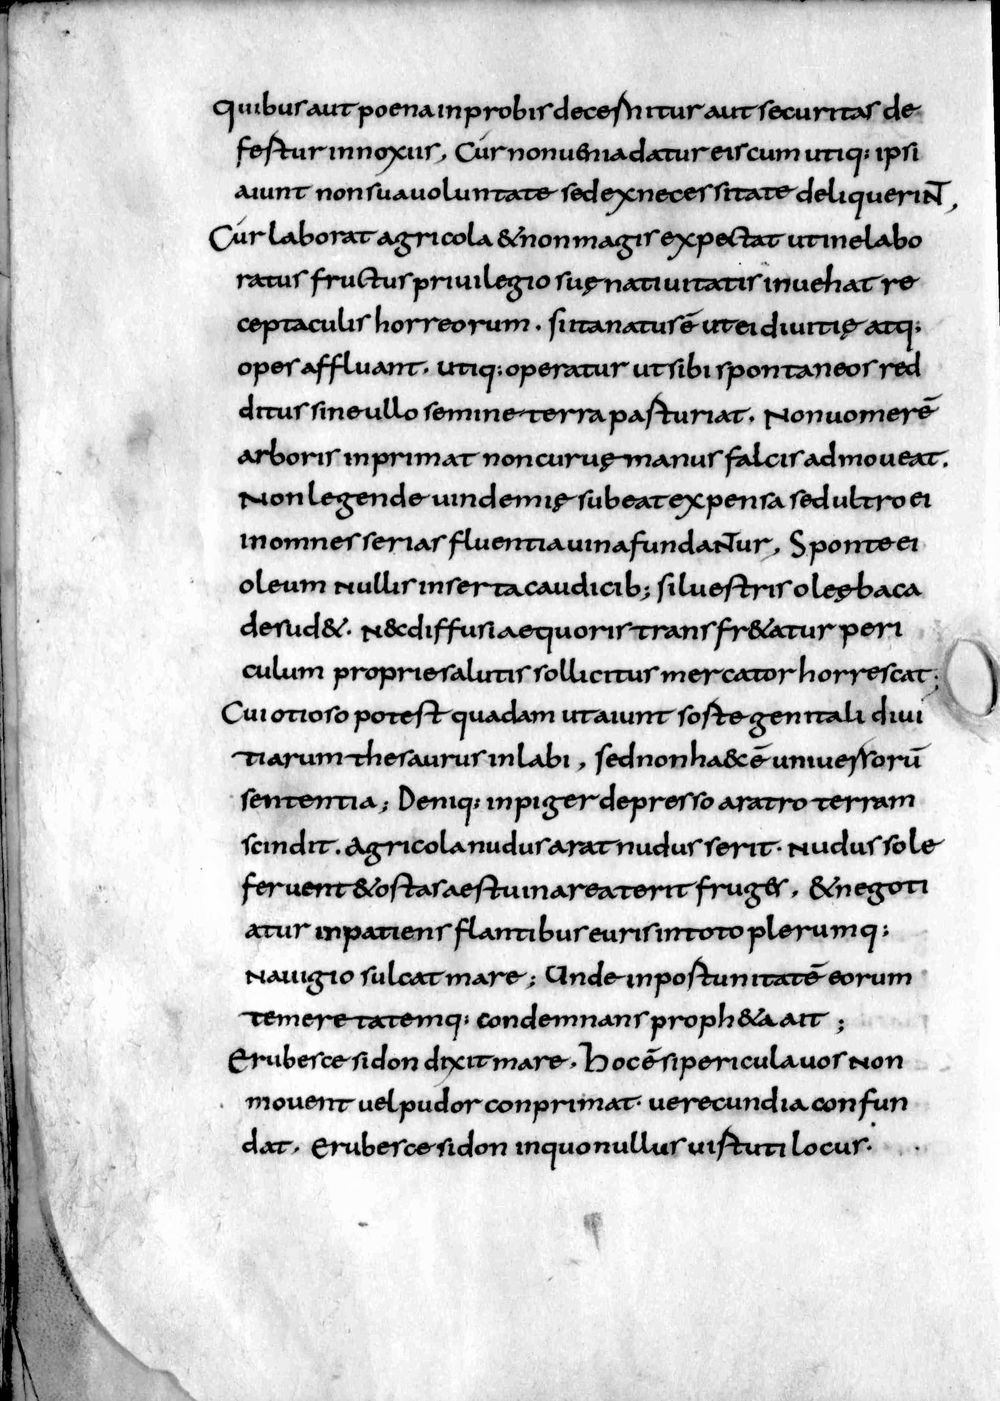 Quibus aut poena inprobis decernitur aut securitas de
fertur innoxiis, Cur non uenia datur eis cum utiq; ipsi
aiunt non sua uoluntate sed ex necessitate deliqueriNT,
Cur laborat agricola & non magis expectat ut inelabo
ratus fructus priuilegio suę natiuitatis inuehat re
ceptaculis horreorum. si ita natus ē ut ei diuitię atq;
opes affluant. utiq; operatur ut sibi spontaneos red
ditus sine ullo semine terra parturiat. Non uomerē
arboris inprimat non curuę manus falcis admoueat.
Non legende uindemię subeat expensa sed ultro ei
in omnes serias fluentia uina fundaNTur, Sponte ei
oleum nullis inserta caudicib; siluestris olęę baca
desud&. N&c diffusi aequoris transfr&atur peri
culum proprie salutis sollicitus mercator horrescat;
Cui otioso potest quadam ut aiunt sorte genitali diui
tiarum thesaurus inlabi, sed non ha&c ē uniuersorū
sententia; Deniq; inpiger depresso aratro terram
scindit. Agricola nudus arat nudus serit. Nudus sole
feruent& ostas aestu in area terit fruges, & negoti
atur inpatiens flantibus euris intoto plerumq;
nauigio sulcat mare; Unde inportunitatē eorum
temeretatemq; condemnans proph&a ait;
Erubesce sidon dixit mare. Hoc ē si pericula uos non
mouent uel pudor conprimat. uerecundia confun
dat. Erubesce sidon in quo nullus uirtuti locus.